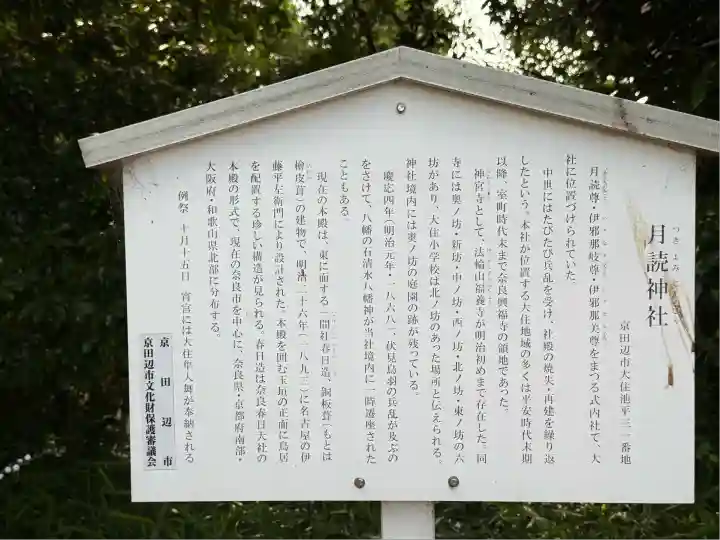 つきよみ
月読神社
京田辺市大住池平三一番地
月読尊・伊邪那岐尊・伊邪那美尊をまつる式内社で、大
社に位置づけられていた。
中世にはたびたび兵乱を受け、社殿の焼失・再建を繰り返
したという。本社が位置する大住地域の多くは平安時代末期
以降、室町時代末まで奈良興福寺の領地であった。
神宮寺として、法輪山福養寺が明治初めまで存在した。同
寺には奥ノ坊・新坊・中ノ坊・西ノ坊・北ノ坊・東ノ坊の六
坊があり、大住小学校は北ノ坊のあった場所と伝えられる。
神社境内には奥ノ坊の庭園の跡が残っている。
慶応四年(明治元年・一八六八)、伏見鳥羽の兵乱が及ぶの
をさけて、八幡の石清水八幡神が当社境内に一時遷座された
こともある。
現在の本殿は、東に面する一間社春日造、銅板葺(もとは
檜皮葺)の建物で、明治二十六年(一八九三)に名古屋の伊
藤平左衛門により設計された。本殿を囲む玉垣の正面に鳥居
を配置する珍しい構造が見られる。春日造は奈良春日大社の
本殿の形式で、現在の奈良市を中心に、奈良県・京都府南部・
大阪府・和歌山県北部に分布する。
例祭 十月十五日 宵宮には大住隼人舞が奉納される
京田辺市
京田辺市文化財保護審議会